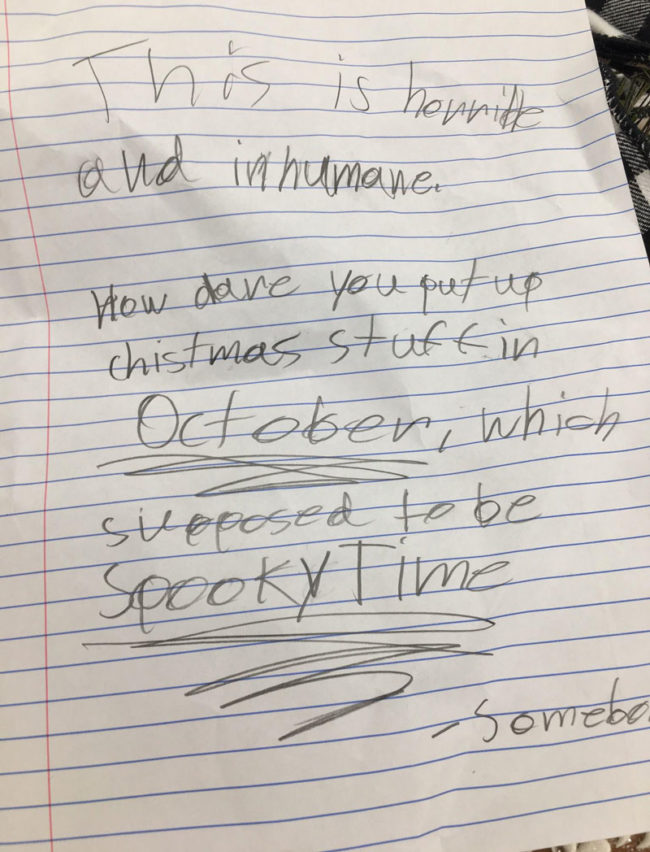 This is horrible
and inhumane.
How dare you put up
chistmas stuff in
October, which
supposed to be
Spooky Time
- Somebo